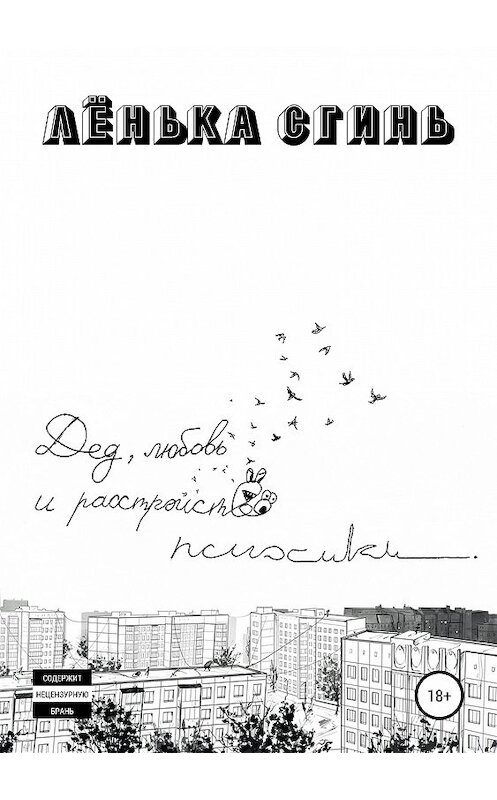 ЛЁНЬКА СГИНЬ
Дед, любовь
и расстройство
психики.
СОДЕРЖИТ
НЕЦЕНЗУРНУЮ
БРАНЬ
18+